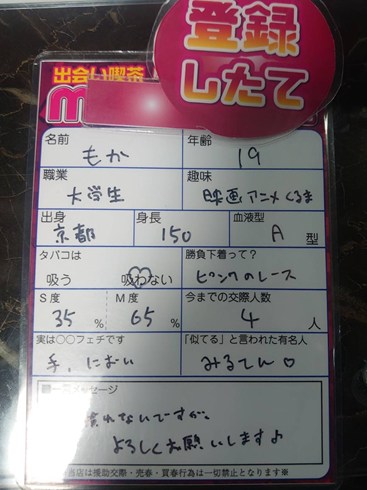 登録
したて
出会い喫茶
m
名前 年齢
もか 19
職業 趣味
大学生 映画アニメくるま
出身 身長 血液型
京都 150 A型
タバコは 勝負下着って?
吸う 吸わない ピンクのレース
S度 M度 今までの交際人数
35% 65% 4人
実は○○フェチです 「似てる」と言われた有名人
手、におい みるてん♡
メッセージ
慣れないですが、
よろしくお願いします♪
当店は援助交際・売春・買春行為は一切禁止となります※